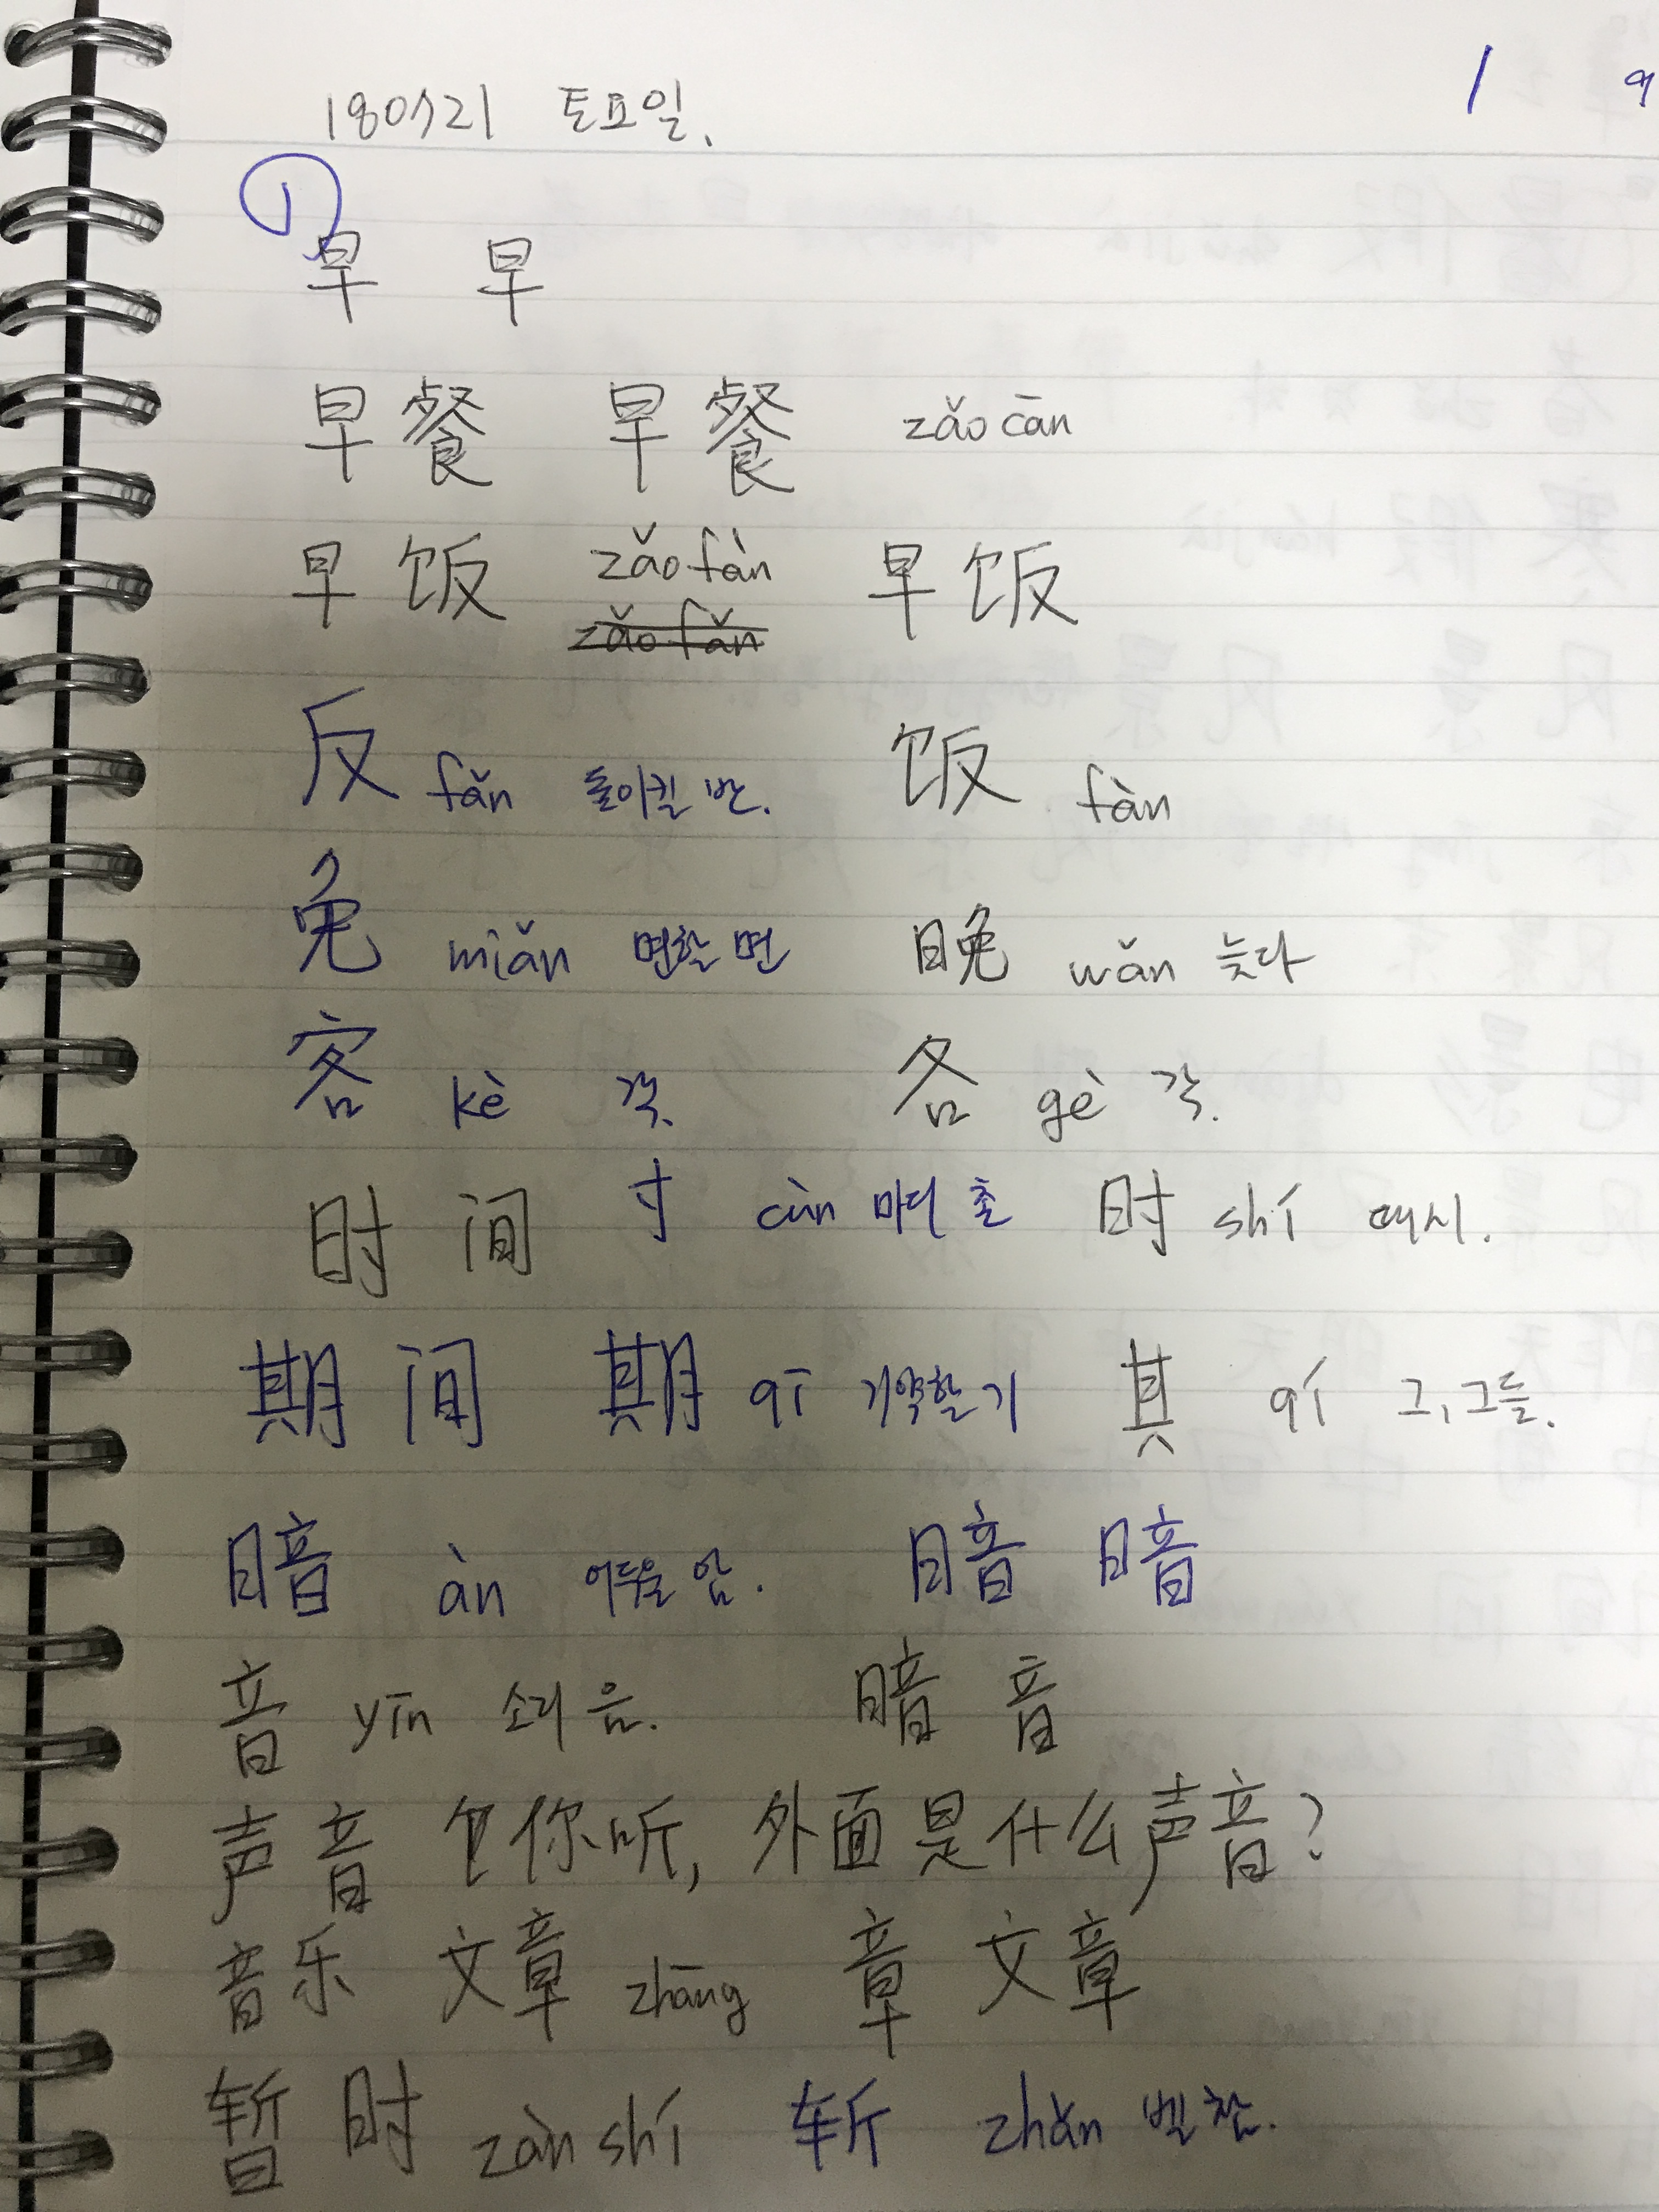 180721 토요일.
1
① 早 早
早餐 早餐 zǎo cān
早饭 zǎo fàn 早饭
zǎo fǎn
反 fǎn 돌이킬 반. 饭 fàn
免 miǎn 면할 면 晚 wǎn 늦다
客 kè 각. 各 gè 각.
时间 寸 cùn 마디 촌 时 shí 때시.
期间 期 qī 기약할 기 其 qí 그, 그들.
暗 àn 어두울 암. 暗 暗
音 yīn 소리 음. 暗 音
声音 你听, 外面是什么声音?
音乐 文章 zhāng 章 文章
暂时 zàn shí 斩 zhǎn 벨 참.